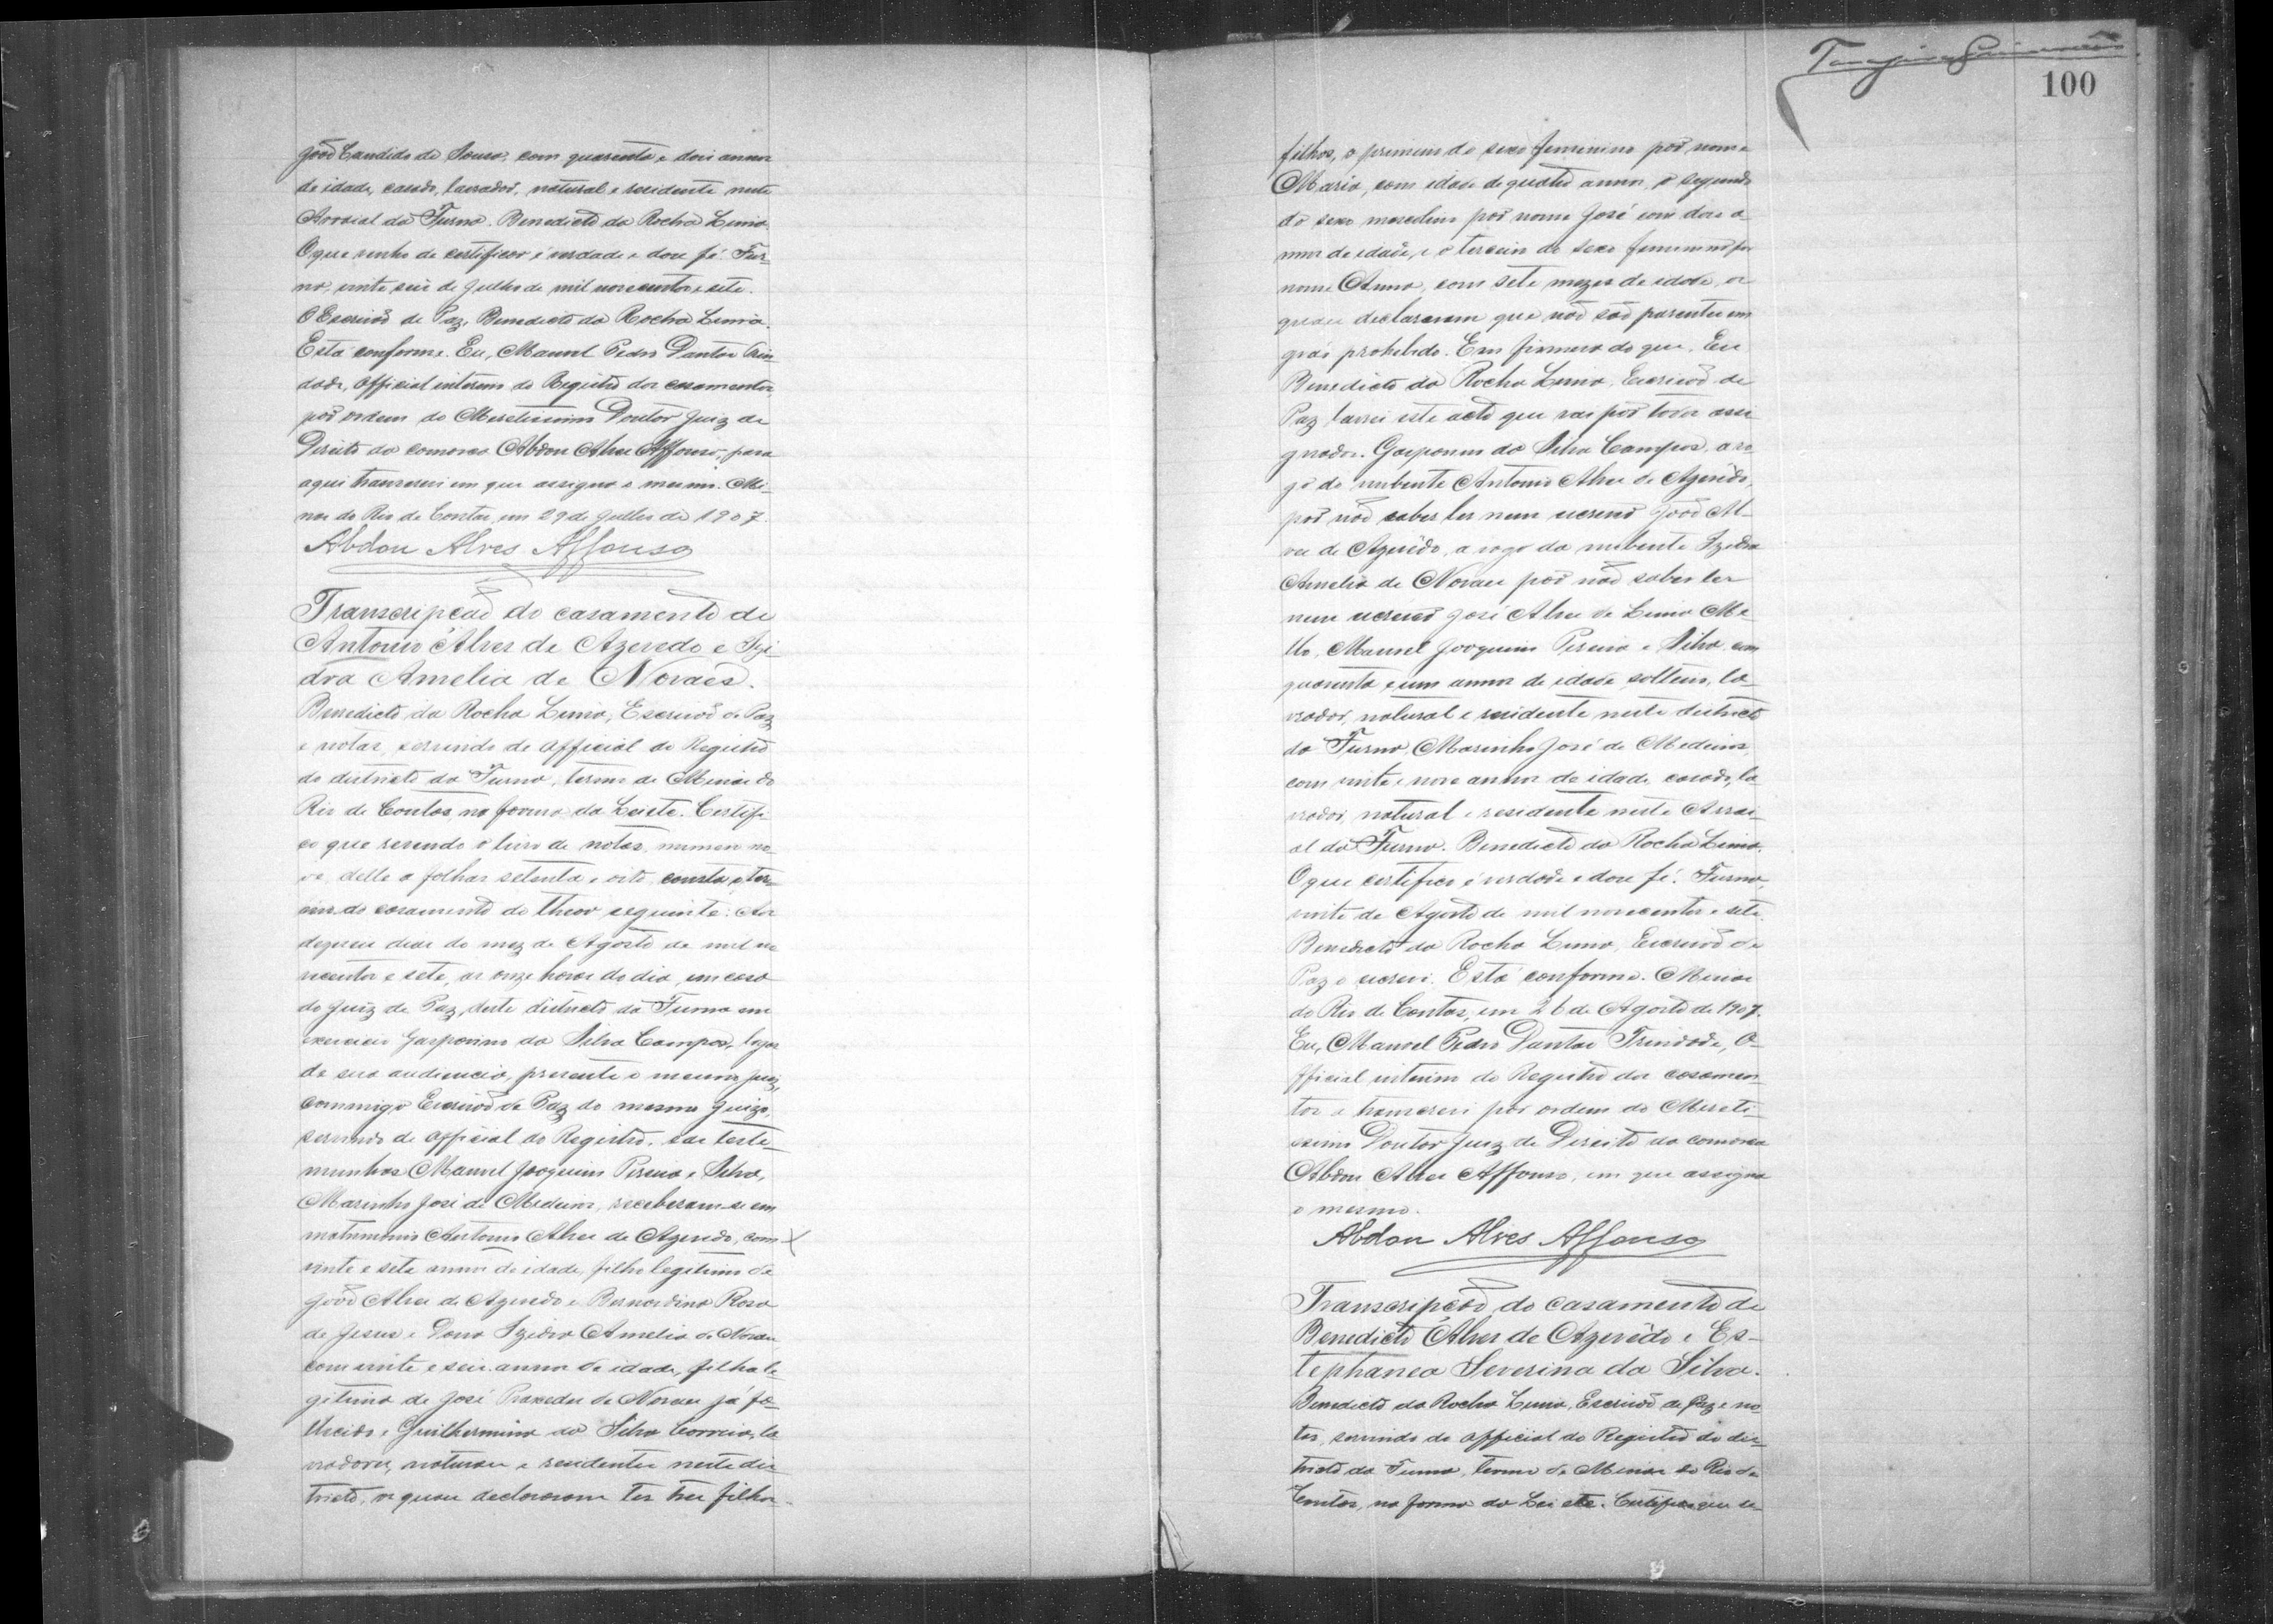 João Candido de Souza, com quarenta e dois annos
de idade, casado, lavrador, natural e residente neste
Arraial da Furna. Benedicto da Rocha Lima.
O que venho de certificar é verdade e dou fé. Fur-
na, vinte seis de Julho de mil novecentos e sete.
O Escrivão de Paz, Benedicto da Rocha Lima.
Está conforme. Eu, Manoel Pedro Dantas Trin
dade, official interino do Registro dos casamentos,
por ordem do Meretissimo Doutor Juiz de
Direito da comarca Abdon Alves Affonso, para
aqui transcrevi em que assigna o mesmo. Mi-
nas do Rio de Contas, em 29 de Julho de 1907.
Abdon Alves Affonso
Transcripção do casamento de
Antonio Alves de Azevedo e Izi-
dra Amelia de Novaes.
Benedicto da Rocha Lima, Escrivão de Paz
e notas, servindo de official do Registro
do districto da Furna, termo de Minas do
Rio de Contas, na forma da Lei etc. Certifi-
co que revendo o livro de notas, numero no-
ve, delle a folhas setenta e oito, consta o ter-
mo do casamento do theor seguinte: Aos
dezeseis dias do mez de Agosto de mil no
vecentos e sete, as onze horas do dia, em casa
do Juiz de Paz, deste districto da Furna em
exercicio Gasparino da Silva Campos, lugar
de sua audiencia, presente o mesmo Juiz,
commigo Escrivão de Paz do mesmo Juizo,
servindo de official do Registro, e as teste-
munhas Manoel Joaquim Pereira e Silva,
Marinho José de Medeiros, receberam-se em
matrimonio Antonio Alves de Azevedo, com X
vinte e sete annos de idade, filho legitimo de
João Alves de Azevedo e Bernardina Rosa
de Jesus e Dona Izidra Amelia de Novaes
com vinte e seis annos de idade, filha le-
gitima de José Praxedes de Novaes já fa-
llecido e Guilhermina da Silva Correia, la
vradores, naturaes e residentes neste dis
tricto, os quaes declararam ter tres filhos
100
filhos, o primeiro do sexo femenino por nome
Maria, com idade de quatro annos, o segundo
do sexo masculino por nome José com dois a-
nnos de idade, e o terceiro do sexo femenino por
nome Anna, com sete mezes de idade, os
quaes declararam que não são parentes em
gráo prohibido. Em firmeza do que, Eu
Benedicto da Rocha Lima, Escrivão de
Paz lavrei este acto que vai por todos assi
gnados. Gasparino da Silva Campos, a ro
go do nubente Antonio Alves de Azevêdo,
por não saber ler nem escrever João Al-
ves de Azevêdo, a rogo da nubente Izidra
Amelia de Novaes por não saber ler
nem escrever José Alves de Lima Me-
llo, Manoel Joaquim Pereira e Silva, com
quarenta e um annos de idade, solteiro, la-
vrador, natural e residente neste districto
da Furna, Marinho José de Medeiros,
com vinte e nove annos de idade, casado, la-
vrador, natural e residente neste Arrai-
al da Furna. Benedicto da Rocha Lima.
O que certifico é verdade e dou fé. Furna,
vinte de Agosto de mil novecentos e sete.
Benedicto da Rocha Lima, Escrivão de
Paz o escrevi. Está conforme. Minas
do Rio de Contas, em 26 de Agosto de 1907.
Eu, Manoel Pedro Dantas Trindade, O-
fficial interino do Registro dos casamen-
tos o transcrevi por ordem do Mereti-
ssimo Doutor Juiz de Direito da comarca
Abdon Alves Affonso, em que assigna
o mesmo.
Abdon Alves Affonso
Transcripção do casamento de
Benedicto Alves de Azevêdo e Es-
tephanea Severina da Silva.
Benedicto da Rocha Lima, Escrivão de Paz e no
tas, servindo de official do Registro do dis-
tricto da Furna, termo de Minas do Rio de
Contas, na forma da Lei etc. Certifico que re-